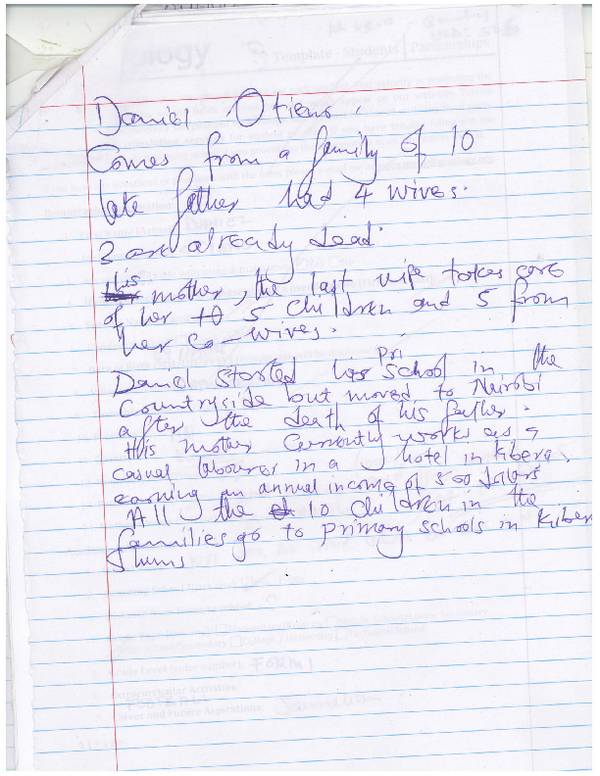 Daniel Otieno.
Comes from a family of 10
late father had 4 wives.
3 are already dead.
His mother, the last wife takes care
of her 5 children and 5 from
her co-wives.
Daniel started his Pri School in the
Countryside but moved to Nairobi
after the death of his father.
His mother currently works as a
casual labourer in a hotel in kibera.
earning an annual income of 500 dollars
All the 10 children in the
families go to primary schools in kiber
slums